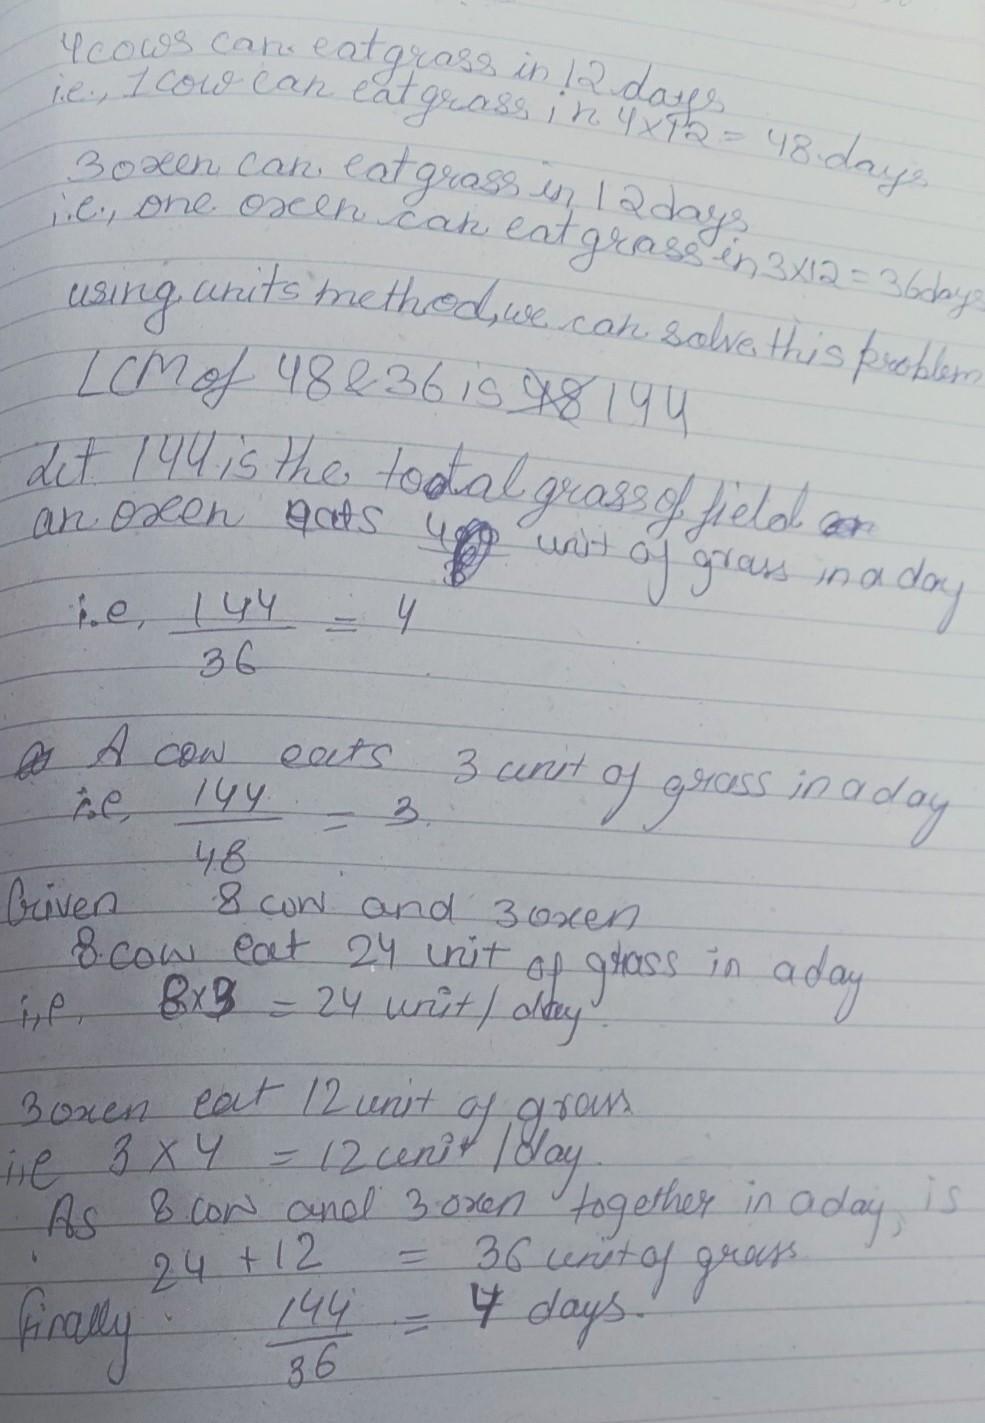 4 cows can eat grass in 12 days
i.e., 1 cow can eat grass in 4×12 = 48 days
3 oxen can eat grass in 12 days
i.e., one oxen can eat grass in 3×12 = 36 days
using units method, we can solve this problem
LCM of 48 & 36 is 144
Let 144 is the tootal grass of field
an oxen eats 4 unit of grass in a day
i.e, 144/36 = 4
A cow eats 3 unit of grass in a day
i.e, 144/48 = 3.
Given 8 cow and 3 oxen
8 cow eat 24 unit of grass in a day
i,e, 8×3 = 24 unit/day
3 oxen eat 12 unit of grass
i,e 3 × 4 = 12 unit /day.
As 8 cow and 3 oxen together in a day, is
24 + 12 = 36 unit of grass
finally 144/36 = 4 days.